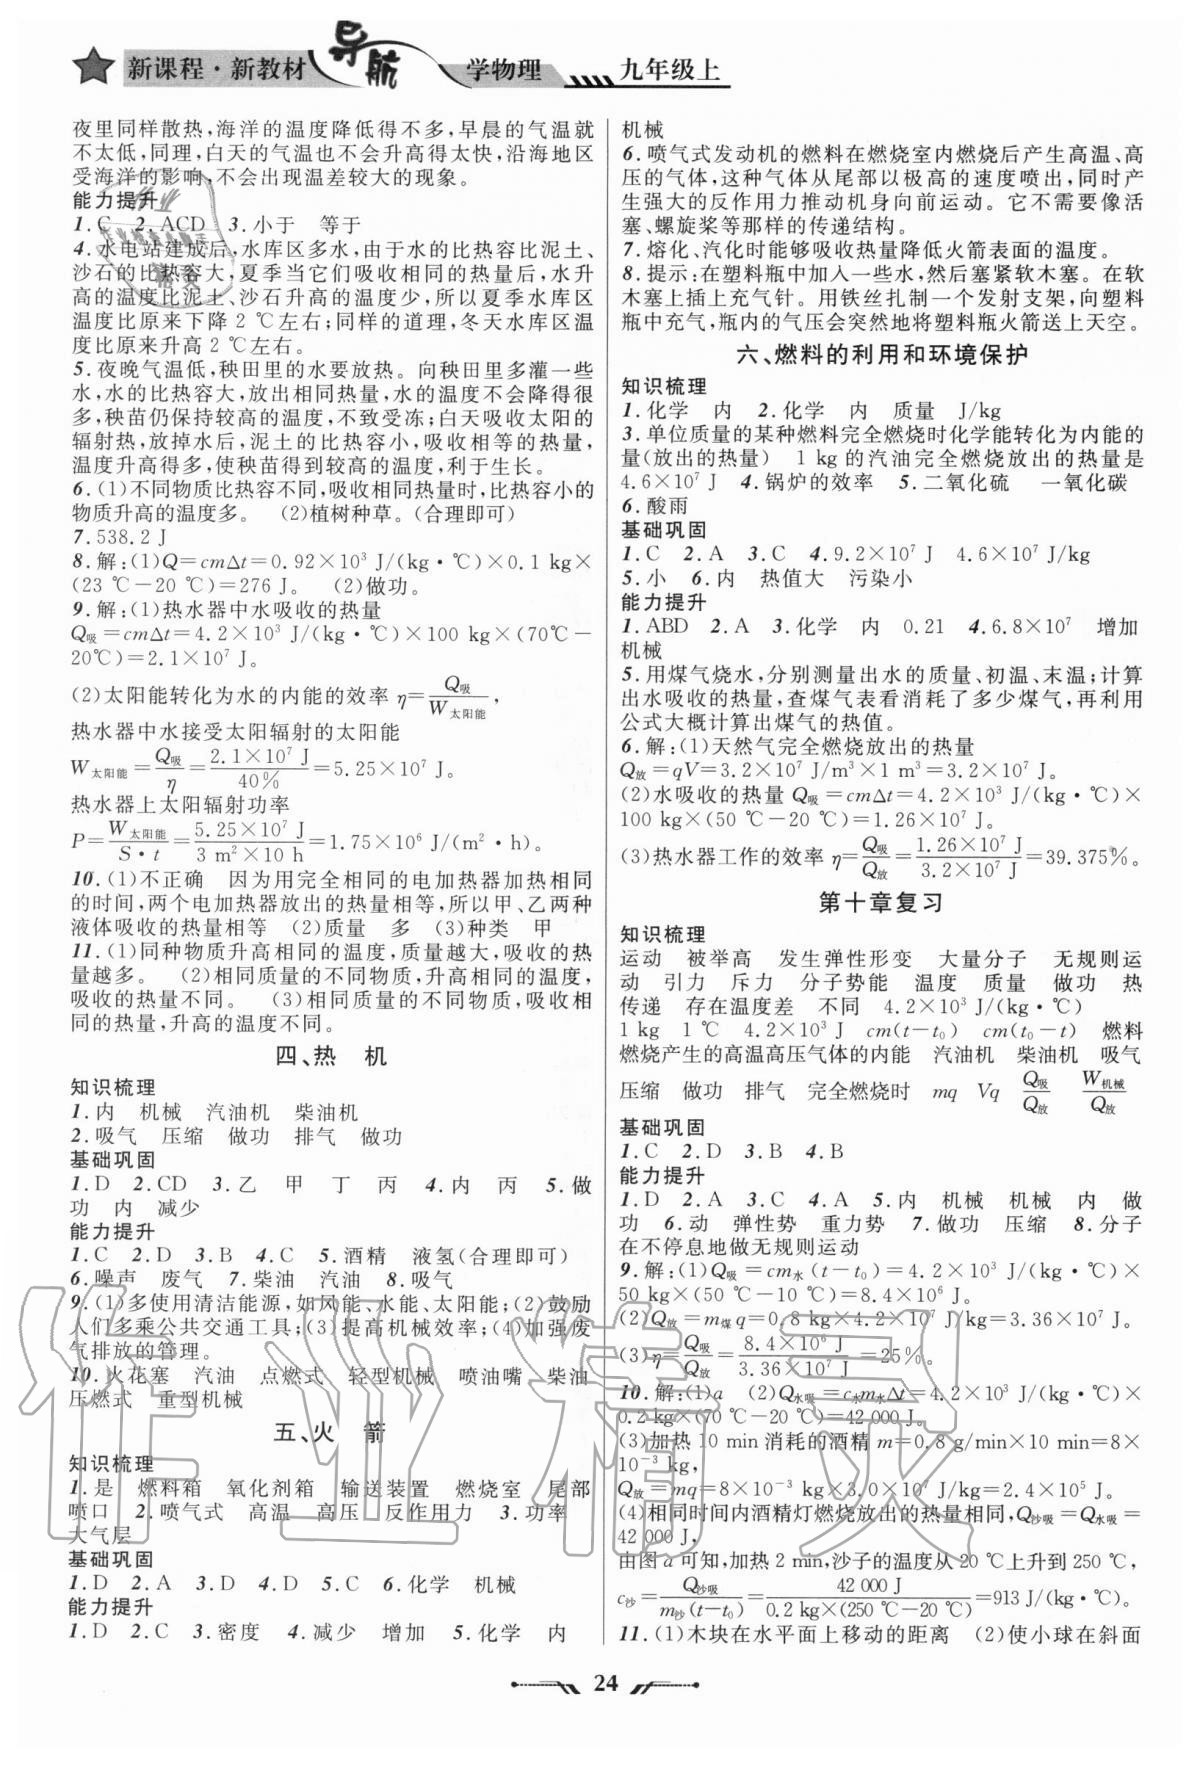 新课程·新教材 导航 学物理 九年级上
夜里同样散热,海洋的温度降低得不多,早晨的气温就
不太低,同理,白天的气温也不会升高得太快,沿海地区
受海洋的影响,不会出现温差较大的现象。
能力提升
1.C 2.ACD 3.小于 等于
4.水电站建成后,水库区多水,由于水的比热容比泥土、
沙石的比热容大,夏季当它们吸收相同的热量后,水升
高的温度比泥土、沙石升高的温度少,所以夏季水库区
温度比原来下降 2 ℃左右;同样的道理,冬天水库区温
度比原来升高 2 ℃左右。
5.夜晚气温低,秧田里的水要放热。向秧田里多灌一些
水,水的比热容大,放出相同热量,水的温度不会降得很
多,秧苗仍保持较高的温度,不致受冻;白天吸收太阳的
辐射热,放掉水后,泥土的比热容小,吸收相等的热量,
温度升高得多,使秧苗得到较高的温度,利于生长。
6.(1)不同物质比热容不同,吸收相同热量时,比热容小的
物质升高的温度多。 (2)植树种草。(合理即可)
7.538.2 J
8.解:(1)Q=cmΔt=0.92×10³ J/(kg·℃)×0.1 kg×
(23 ℃-20 ℃)=276 J。 (2)做功。
9.解:(1)热水器中水吸收的热量
Q吸=cmΔt=4.2×10³ J/(kg·℃)×100 kg×(70℃-
20℃)=2.1×10⁷ J。
(2)太阳能转化为水的内能的效率 η=Q吸/W太阳能,
热水器中水接受太阳辐射的太阳能
W太阳能=Q吸/η=2.1×10⁷ J/40%=5.25×10⁷ J。
热水器上太阳辐射功率
P=W太阳能/S·t=5.25×10⁷ J/3 m²×10 h=1.75×10⁶ J/(m²·h)。
10.(1)不正确 因为用完全相同的电加热器加热相同
的时间,两个电加热器放出的热量相等,所以甲、乙两种
液体吸收的热量相等 (2)质量 多 (3)种类 甲
11.(1)同种物质升高相同的温度,质量越大,吸收的热
量越多。 (2)相同质量的不同物质,升高相同的温度,
吸收的热量不同。 (3)相同质量的不同物质,吸收相
同的热量,升高的温度不同。
四、热 机
知识梳理
1.内 机械 汽油机 柴油机
2.吸气 压缩 做功 排气 做功
基础巩固
1.D 2.CD 3.乙 甲 丁 丙 4.内 丙 5.做
功 内 减少
能力提升
1.C 2.D 3.B 4.C 5.酒精 液氢(合理即可)
6.噪声 废气 7.柴油 汽油 8.吸气
9.(1)多使用清洁能源,如风能、水能、太阳能;(2)鼓励
人们多乘公共交通工具;(3)提高机械效率;(4)加强废
气排放的管理。
10.火花塞 汽油 点燃式 轻型机械 喷油嘴 柴油
压燃式 重型机械
五、火 箭
知识梳理
1.是 燃料箱 氧化剂箱 输送装置 燃烧室 尾部
喷口 2.喷气式 高温 高压 反作用力 3.功率
大气层
基础巩固
1.D 2.A 3.D 4.D 5.C 6.化学 机械
能力提升
1.D 2.C 3.密度 4.减少 增加 5.化学 内
机械
6.喷气式发动机的燃料在燃烧室内燃烧后产生高温、高
压的气体,这种气体从尾部以极高的速度喷出,同时产
生强大的反作用力推动机身向前运动。它不需要像活
塞、螺旋桨等那样的传递结构。
7.熔化、汽化时能够吸收热量降低火箭表面的温度。
8.提示:在塑料瓶中加入一些水,然后塞紧软木塞。在软
木塞上插上充气针。用铁丝扎制一个发射支架,向塑料
瓶中充气,瓶内的气压会突然地将塑料瓶火箭送上天空。
六、燃料的利用和环境保护
知识梳理
1.化学 内 2.化学 内 质量 J/kg
3.单位质量的某种燃料完全燃烧时化学能转化为内能的
量(放出的热量) 1 kg的汽油完全燃烧放出的热量是
4.6×10⁷ J 4.锅炉的效率 5.二氧化硫 一氧化碳
6.酸雨
基础巩固
1.C 2.A 3.C 4.9.2×10⁷ J 4.6×10⁷ J/kg
5.小 6.内 热值大 污染小
能力提升
1.ABD 2.A 3.化学 内 0.21 4.6.8×10⁷ 增加
机械
5.用煤气烧水,分别测量出水的质量、初温、末温;计算
出水吸收的热量,查煤气表看消耗了多少煤气,再利用
公式大概计算出煤气的热值。
6.解:(1)天然气完全燃烧放出的热量
Q放=qV=3.2×10⁷ J/m³×1 m³=3.2×10⁷ J。
(2)水吸收的热量 Q吸=cmΔt=4.2×10³ J/(kg·℃)×
100 kg×(50 ℃-20 ℃)=1.26×10⁷ J。
(3)热水器工作的效率 η=Q吸/Q放=1.26×10⁷ J/3.2×10⁷ J=39.375%。
第十章复习
知识梳理
运动 被举高 发生弹性形变 大量分子 无规则运
动 引力 斥力 分子势能 温度 质量 做功 热
传递 存在温度差 不同 4.2×10³ J/(kg·℃)
1 kg 1 ℃ 4.2×10³ J cm(t-t₀) cm(t₀-t) 燃料
燃烧产生的高温高压气体的内能 汽油机 柴油机 吸气
压缩 做功 排气 完全燃烧时 mq Vq Q吸/Q放 W机械/Q放
基础巩固
1.C 2.D 3.B 4.B
能力提升
1.D 2.A 3.C 4.A 5.内 机械 机械 内 做
功 6.动 弹性势 重力势 7.做功 压缩 8.分子
在不停息地做无规则运动
9.解:(1)Q吸=cm水(t-t₀)=4.2×10³ J/(kg·℃)×
50 kg×(50 ℃-10 ℃)=8.4×10⁶ J。
(2)Q放=m煤q=0.8 kg×4.2×10⁷ J/kg=3.36×10⁷ J。
(3)η=Q吸/Q放=8.4×10⁶ J/3.36×10⁷ J=25%。
10.解:(1)a (2)Q水吸=c水m水Δt=4.2×10³ J/(kg·℃)×
0.2 kg×(70 ℃-20 ℃)=42 000 J。
(3)加热 10 min消耗的酒精 m=0.8 g/min×10 min=8×
10⁻³ kg,
Q放=mq=8×10⁻³ kg×3.0×10⁷ J/kg=2.4×10⁵ J。
(4)相同时间内酒精灯燃烧放出的热量相同,Q沙吸=Q水吸=
42 000 J,
由图 a 可知,加热 2 min,沙子的温度从 20 ℃上升到 250 ℃,
c沙=Q沙吸/m沙(t-t₀)=42 000 J/0.2 kg×(250 ℃-20 ℃)=913 J/(kg·℃)。
11.(1)木块在水平面上移动的距离 (2)使小球在斜面
24
作业精灵